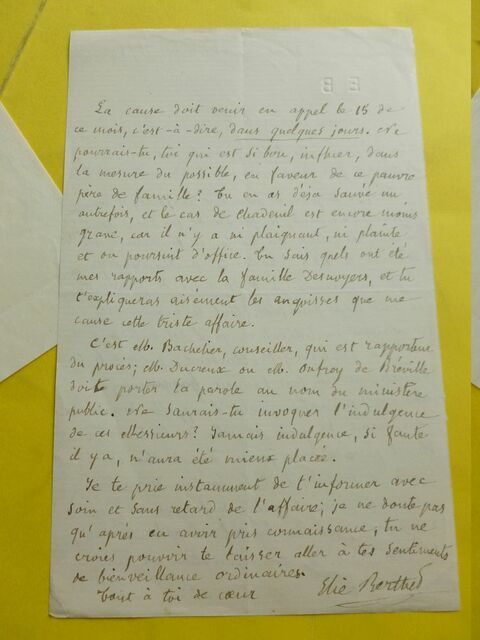 La cause doit venir en appel le 15 de
ce mois, c'est-à-dire, dans quelques jours. Ne
pourrais-tu, toi qui est si bon, influer, dans
la mesure du possible, en faveur de ce pauvre
père de famille? Tu en as déjà sauvé un
autrefois, et le cas de Chadeuil est encore moins
grave, car il n'y a ni plaignant, ni plainte
et on poursuit d'office. Tu sais quels ont été
mes rapports avec la famille Desnoyers, et tu
t'expliqueras aisément les angoisses que me
cause cette triste affaire.
C'est M. Bachelier, conseiller, qui est rapporteur
du procès; M. Ducreux ou M. Onfroy de Bréville
doit porter la parole au nom du ministère
public. Ne saurais-tu invoquer l'indulgence
de ces Messieurs? Jamais indulgence, si faute
il y a, n'aura été mieux placée.
Je te prie instamment de t'informer avec
soin et sans retard de l'affaire; je ne doute pas
qu'après en avoir pris connaissance, tu ne
croies pouvoir te laisser aller à tes sentiments
de bienveillance ordinaires.
Tout à toi de cœur
Elie Berthet